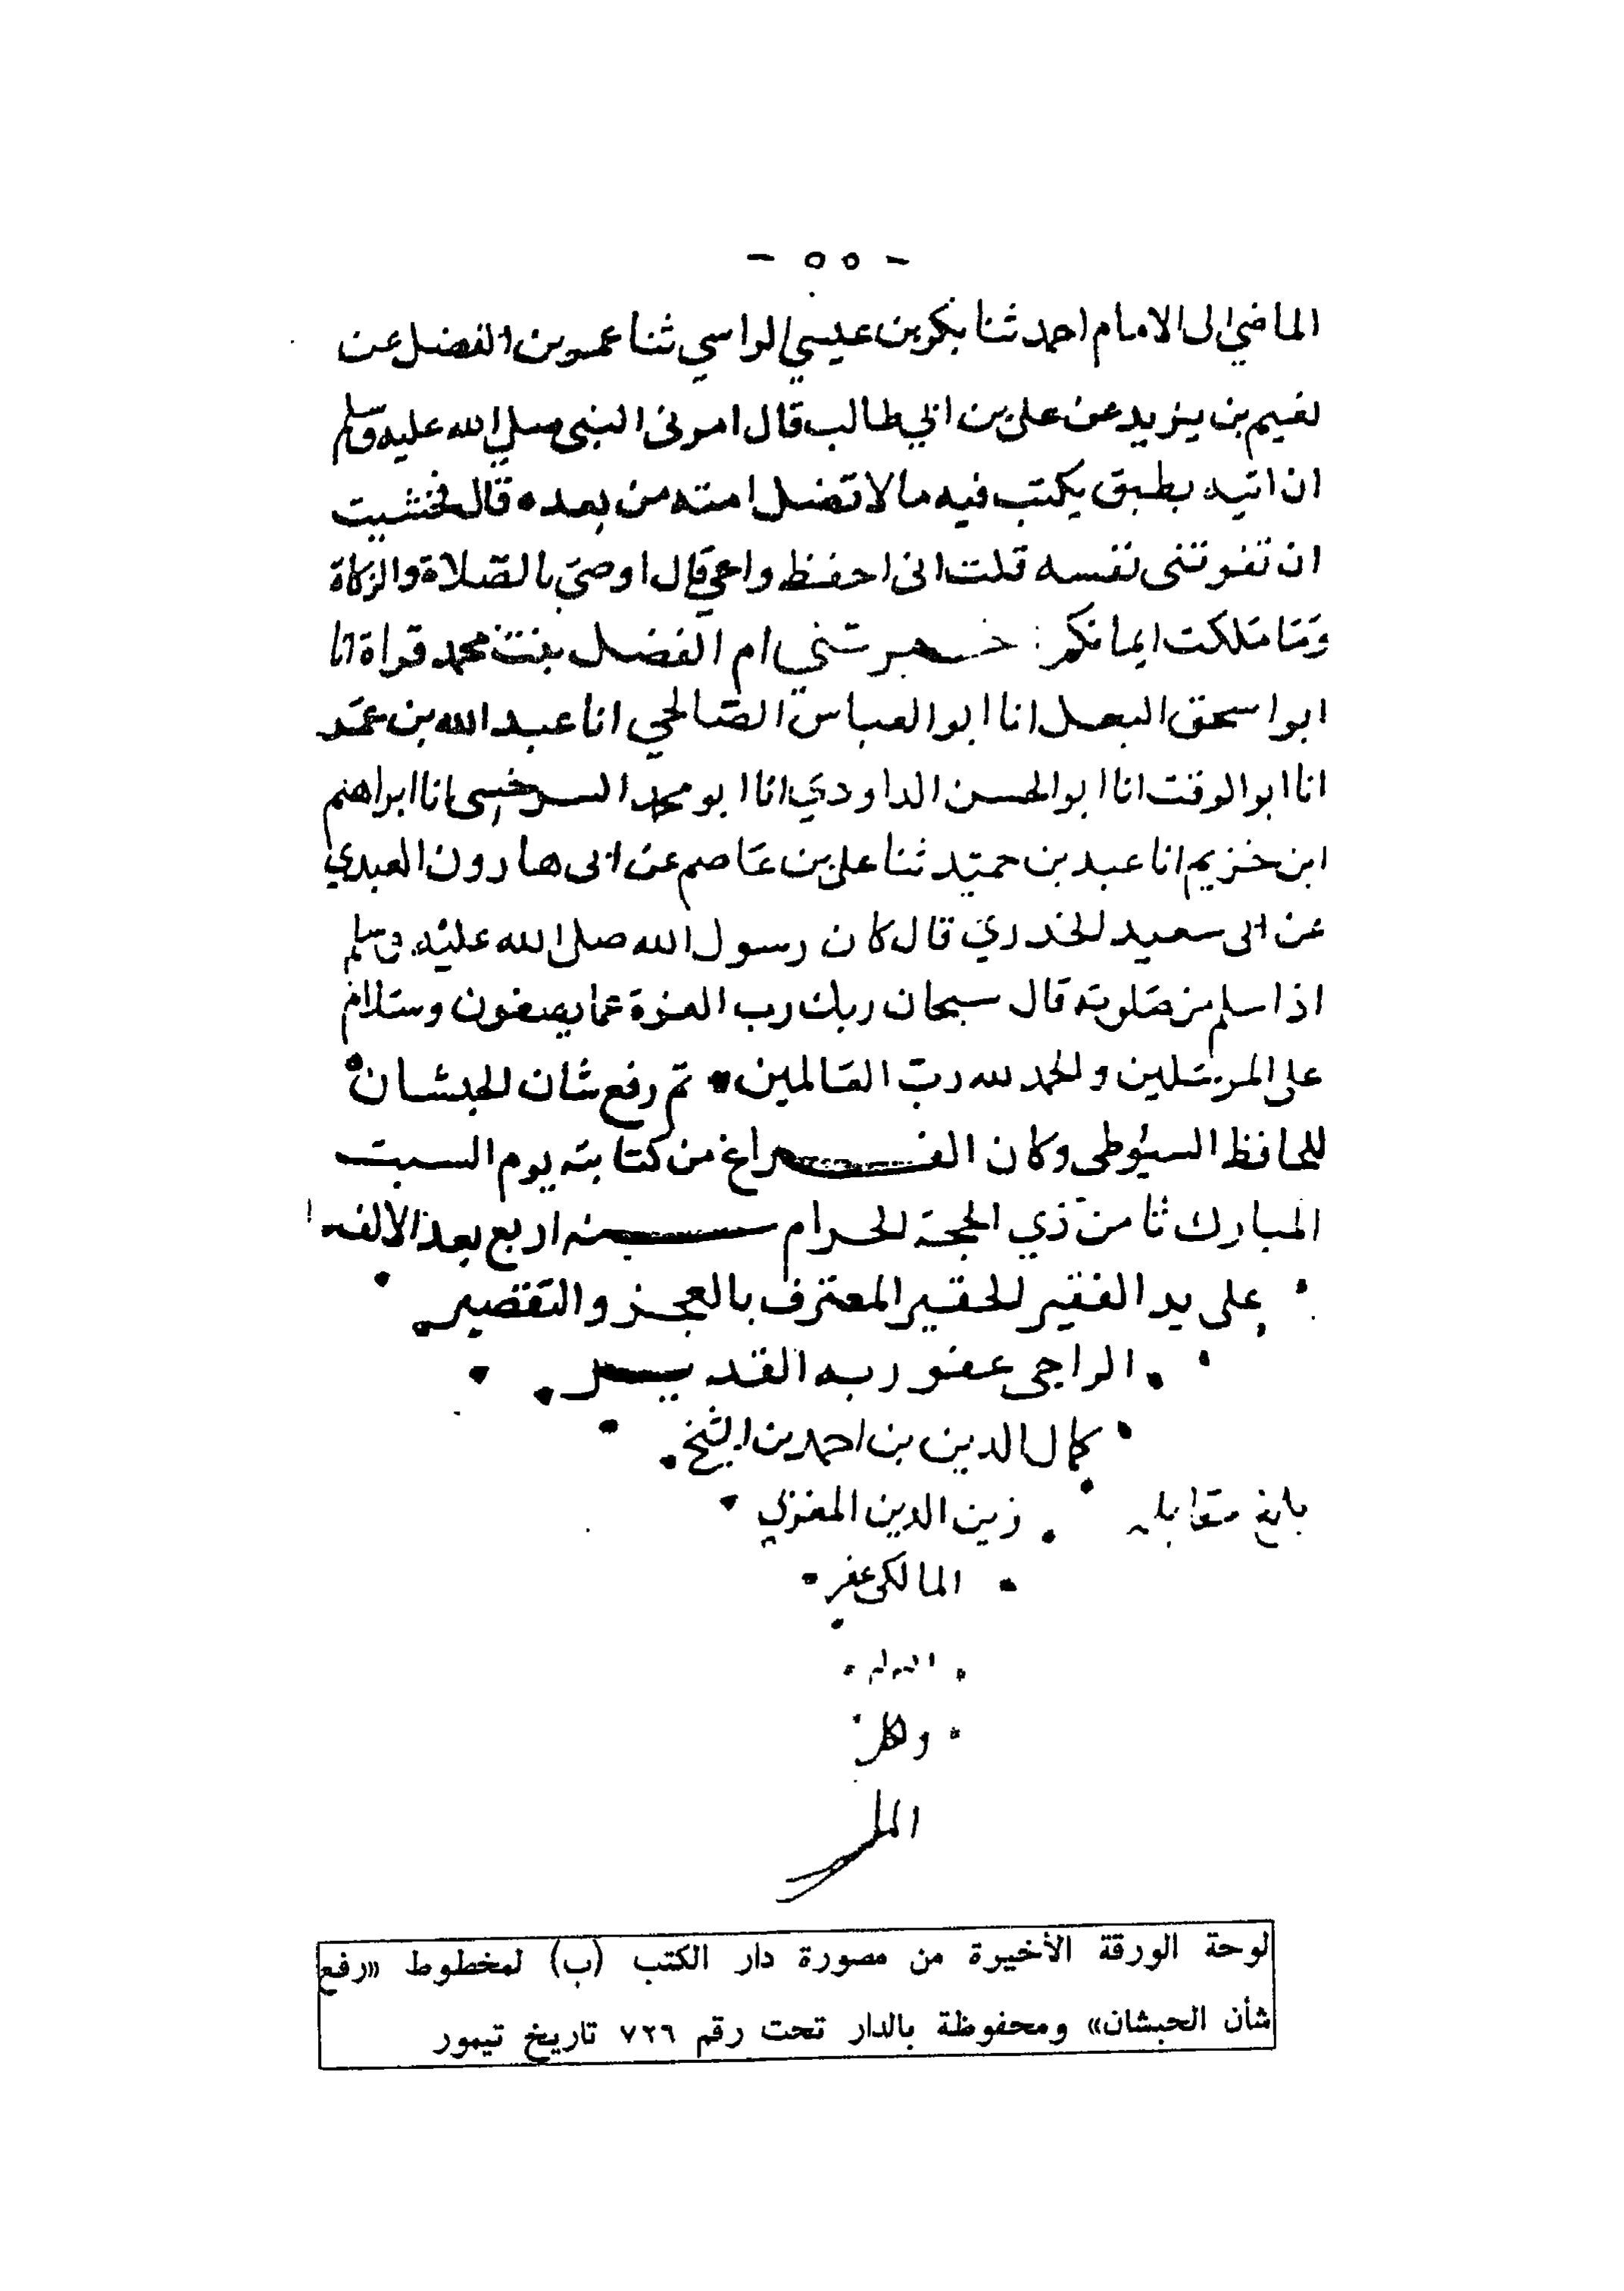 - ٥٥ -
الماضي الى الامام احمد ثنا بكر بن عيسي الراسي ثنا عمر بن الفضل عن
نعيم بن يزيد عن علي بن ابي طالب قال امرنى النبى صلي الله عليه وسلم
ان اتيه بطبق يكتب فيه ما لا تضل امته من بعده قال فخشيت
ان تفوتنى نفسه قلت انى احفظ واعي قال اوصي بالصلاة والزكاة
وما ملكت ايمانكم خبرتني ام الفضل بنت محمد قراة انا
ابو اسحق البعلى انا ابو العباس الصالحي انا عبد الله بن عمر
انا ابو الوقت انا ابو الحسن الداودي انا ابو محمد السرخسى انا ابراهيم
ابن خزيم انا عبد بن حميد ثنا علي بن عاصم عن ابى هارون العبدي
عن ابى سعيد الخدري قال كان رسول الله صلى الله عليه وسلم
اذا سلم من صلوته قال سبحان ربك رب العزة عما يصفون وسلام
على المرسلين والحمد لله رب العالمين تم رفع شان الحبشان
للحافظ السيوطى وكان الفراغ من كتابته يوم السبت
المبارك ثامن ذي الحجة الحرام سنه اربع بعد الالف
على يد الفقير الحقير المعترف بالعجز والتقصير
الراجى عفو ربه القدير
كمال الدين بن احمد بن الشيخ
زين الدين المغزلي
بلغ مقابله
المالكى غفر
الله له
ولكل
لوحة الورقة الأخيرة من مصورة دار الكتب (ب) لمخطوط «رفع
شأن الحبشان» ومحفوظة بالدار تحت رقم ٧٢٦ تاريخ تيمور